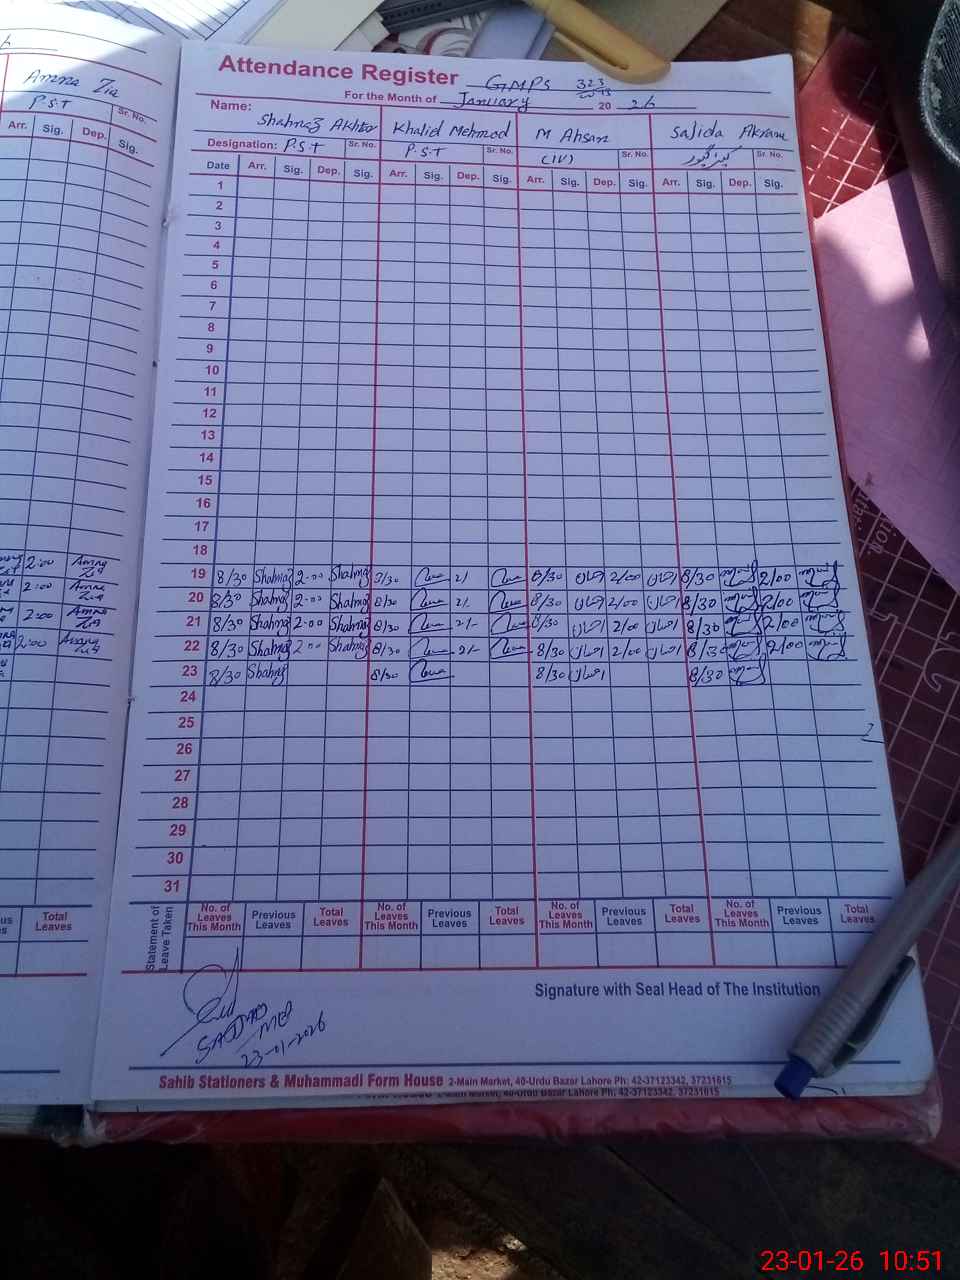 Amna Zia
P.S.T
Sr. No.
Arr. Sig. Dep. Sig.
2:00 Amna Zia
2:00 Amna Zia
2:00 Amna Zia
2:00 Amna Zia
Total Leaves
Attendance Register GMPS 323/WB
For the Month of January 20 26
Name: Shahnaz Akhtar Khalid Mehmod M Ahsan Sajida Akram
Designation: P.S.T Sr. No. P.S.T Sr. No. (IV) Sr. No. Sr. No.
Date Arr. Sig. Dep. Sig. Arr. Sig. Dep. Sig. Arr. Sig. Dep. Sig. Arr. Sig. Dep. Sig.
1
2
3
4
5
6
7
8
9
10
11
12
13
14
15
16
17
18
19 8/30 Shahnaz 2-00 Shahnaz 8/30 2/- 8/30 احسان 2/00 احسان 8/30 2/00
20 8/30 Shahnaz 2-00 Shahnaz 8/30 2/- 8/30 احسان 2/00 احسان 8/30 2/00
21 8/30 Shahnaz 2-00 Shahnaz 8/30 2/- 8/30 احسان 2/00 احسان 8/30 2/00
22 8/30 Shahnaz 2-00 Shahnaz 8/30 2/- 8/30 احسان 2/00 احسان 8/30 2/00
23 8/30 Shahnaz 8/30 8/30 احسان 8/30
24
25
26
27
28
29
30
31
Statement of Leave Taken
No. of Leaves This Month Previous Leaves Total Leaves No. of Leaves This Month Previous Leaves Total Leaves No. of Leaves This Month Previous Leaves Total Leaves No. of Leaves This Month Previous Leaves Total Leaves
Signature with Seal Head of The Institution
23-01-2026
Sahib Stationers & Muhammadi Form House 2-Main Market, 40-Urdu Bazar Lahore Ph: 42-37123342, 37231615
2-Main Market, 40-Urdu Bazar Lahore Ph: 42-37123342, 37231615
23-01-26 10:51